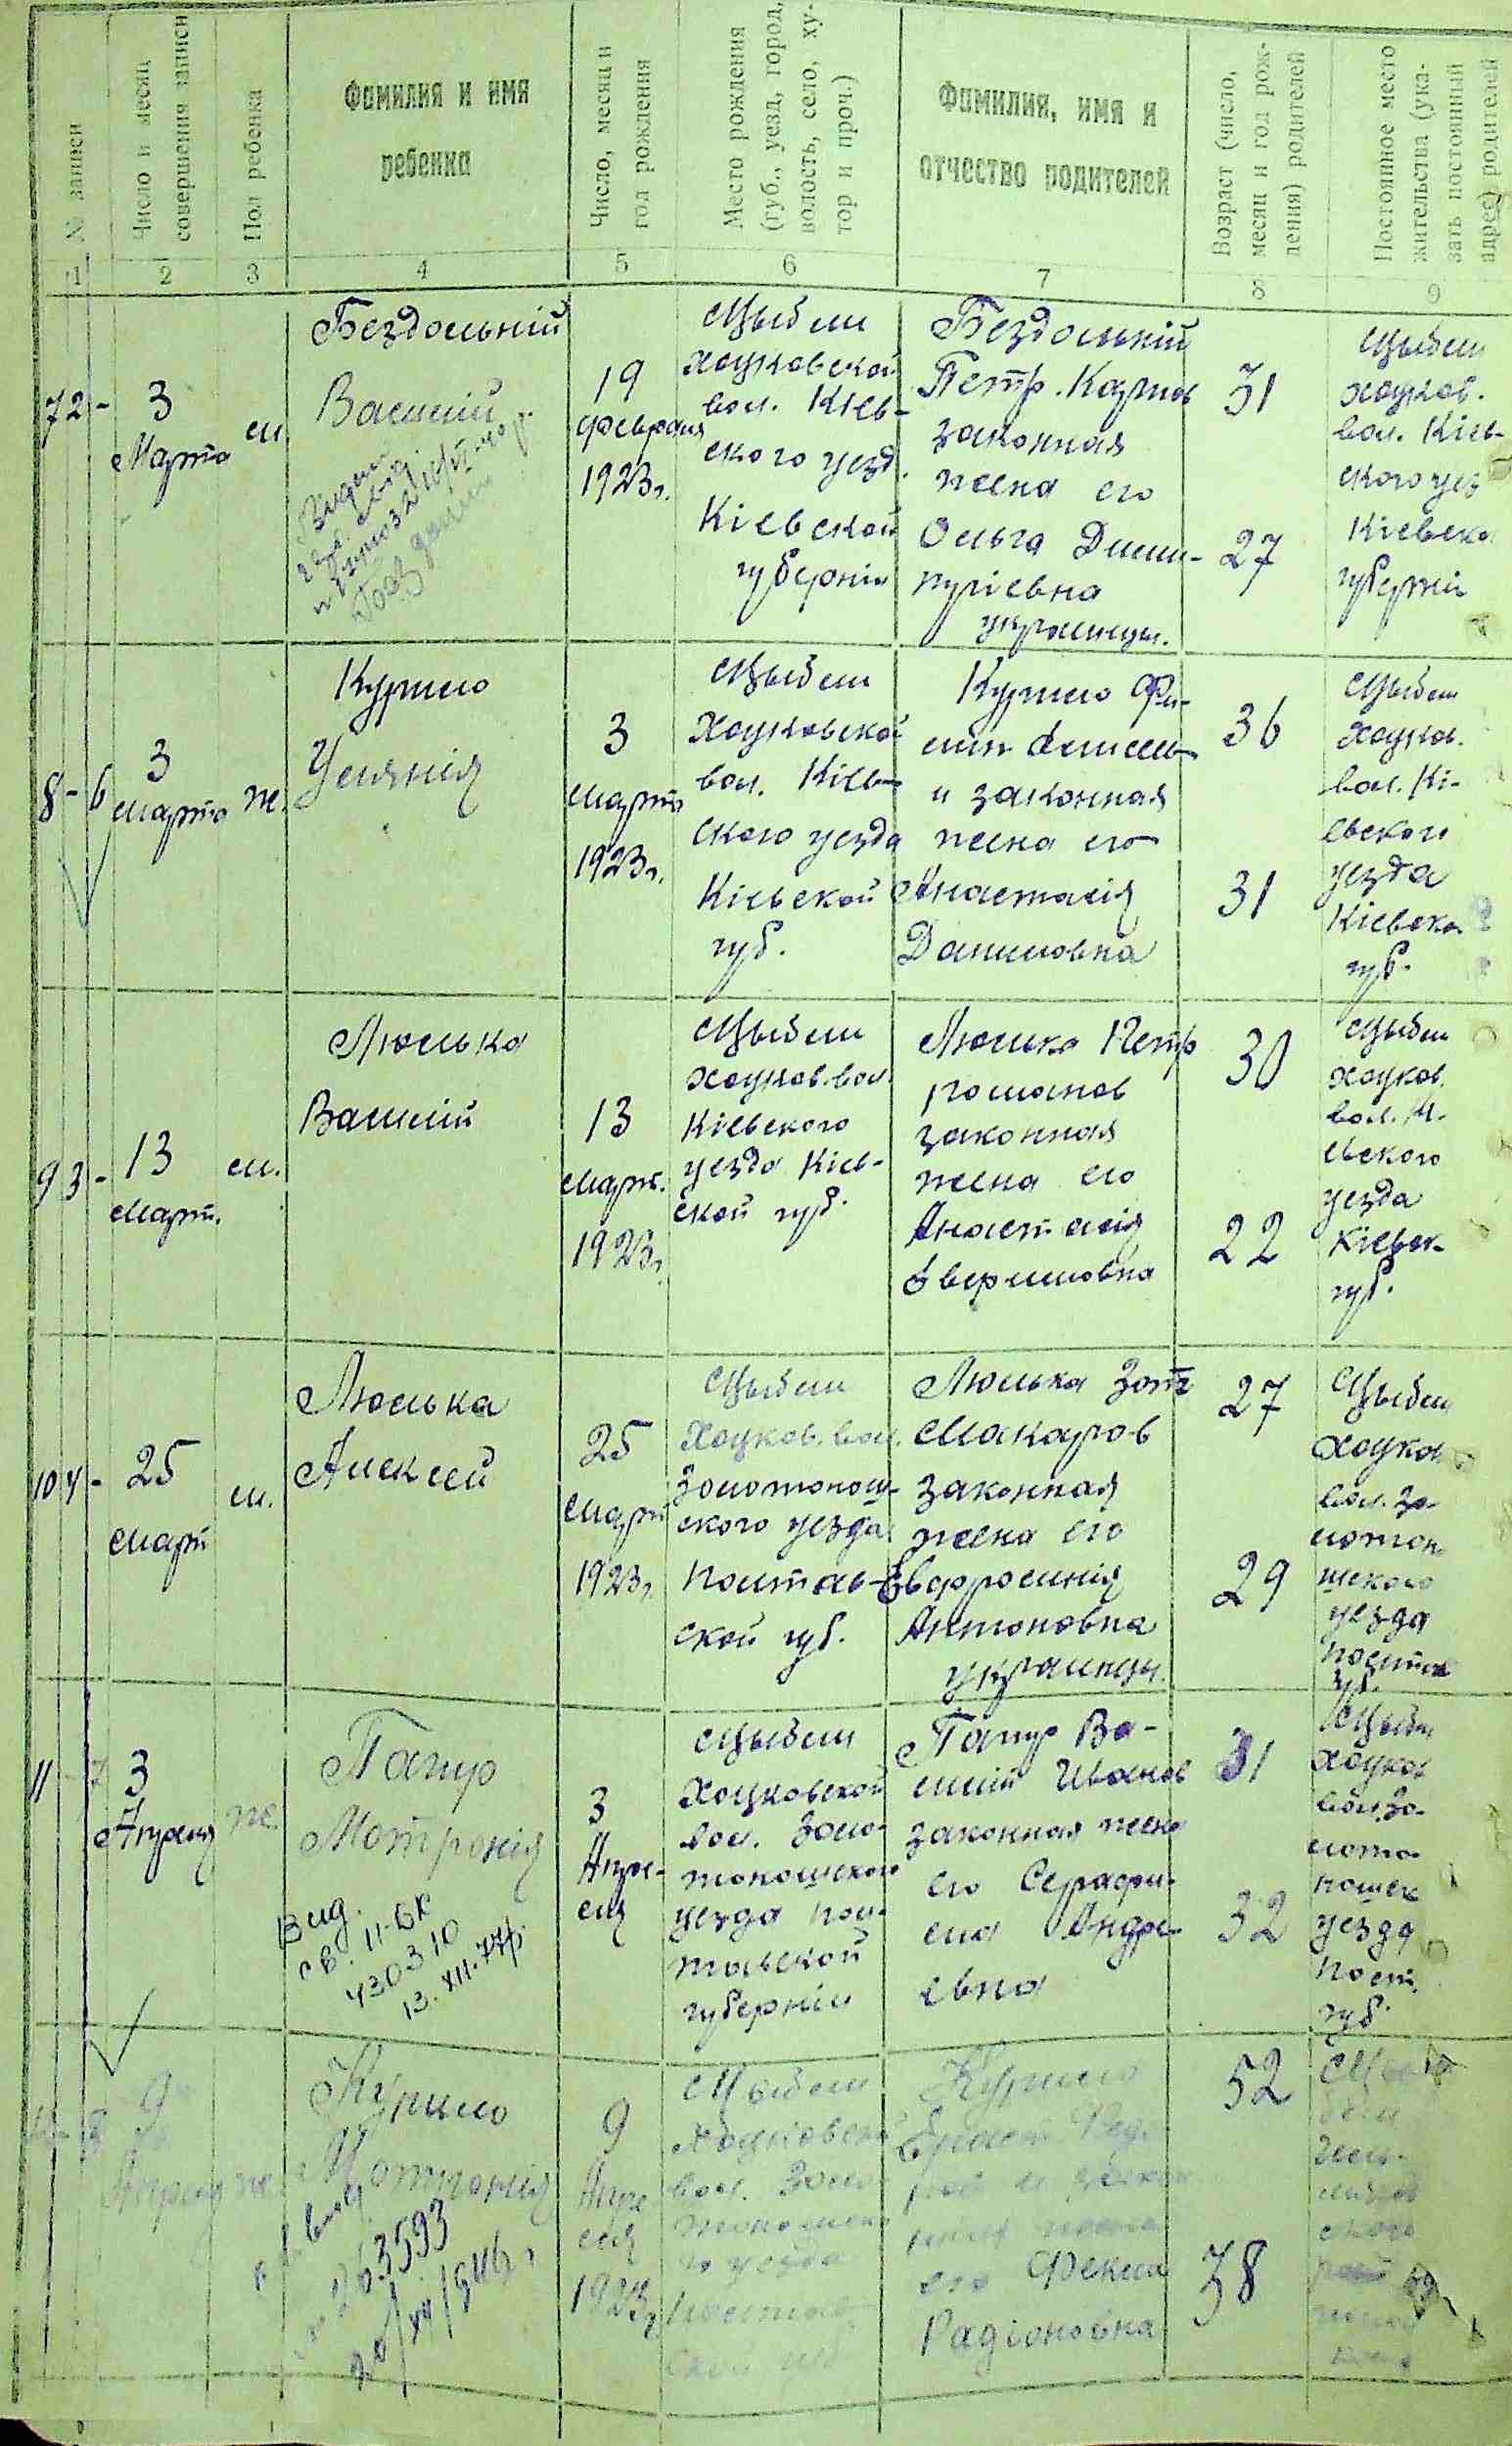 № записи
Число и месяц
совершения записи
Пол ребенка
Фамилия и имя
ребенка
Число, месяц и
год рождения
Место рождения
(губ., уезд, город,
волость, село, ху-
тор и проч.)
Фамилия, имя и
отчество родителей
Возраст (число,
месяц и год рож-
дения) родителей
Постоянное место
жительства (ука-
зать постоянный
адрес) родителей
1
2
3
4
5
6
7
8
9
7 2 -
3
Марта
м.
Бездольній
Василій
19
февраля
1923 г.
Цыбли
Хоцковской
вол. Кіев-
ского уезд.
Кіевской
губерніи
Бездольній
Петр. Карпов
законная
жена его
Ольга Дими-
тріевна
украинцы.
31
27
Цыбли
Хоцков.
вол. Кіев-
ского уез
Кіевско
губерніи
8 - 6
3
марта
ж.
Курило
Уліянія
3
марта
1923 г.
Цыбли
Хоцковской
вол. Кіев-
ского уезда
Кіевской
губ.
Курило Фи-
лип
и законная
жена его
Анастасія
Даниловна
36
31
Цыбли
Хоцков.
вол. Кі-
евского
уезда
Кіевско
губ.
9 3 -
13
март.
м.
Люлька
Василій
13
март.
1923 г.
Цыбли
Хоцков. вол.
Кіевского
уезда Кіев-
ской губ.
Люлька Петр
Романов
законная
жена его
Анастасія
Авериловна
30
22
Цыбли
Хоцков.
вол. Кі-
евского
уезда
Кіевск.
губ.
10 4 -
25
март
м.
Люлька
Алексей
25
март
1923 г.
Цыбли
Хоцков. вол.
Золотонош-
ского уезда
Полтав-
ской губ.
Люлька Зот
Макаров
законная
жена его
Евфросинія
Антоновна
украинцы.
27
29
Цыбли
Хоцков
вол. Зо-
лотон
шского
уезда
Полтав
губ.
11 7
3
Апреля
ж.
Папур
Мотронія
Вид.
св. II-БК
430310
13.XII.77р.
3
Апре-
ля
Цыбли
Хоцковской
вол. Золо-
тоношского
уезда Пол-
тавской
губерніи
Папур Ва-
силій Иванов
законная жена
его Серафи-
ма Андре-
евна
31
32
Цыбли
Хоцков
вол. Зо-
лото-
ношск
уезда
Полт.
губ.
8
9
Апреля
ж.
Курило
Мотронія
263593
9
Апре
ля
1923 г.
Цыбли
Хоцковской
вол. Золо
тоношско
го уезда
Полтав
ской губ
Курило
жена
его Фекла
Радіоновна
52
38